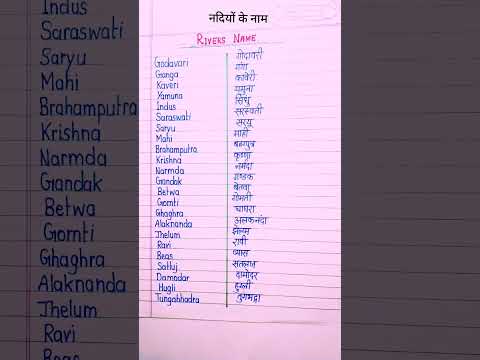 नदियों के नाम
RIVERS NAME
Godavari गोदावरी
Ganga गंगा
Kaveri कावेरी
Yamuna यमुना
Indus सिंधु
Saraswati सरस्वती
Saryu सरयू
Mahi माही
Brahamputra ब्रह्मपुत्र
Krishna कृष्णा
Narmda नर्मदा
Gandak गण्डक
Betwa बेतवा
Gomti गोमती
Ghaghra घाघरा
Alaknanda अलकनंदा
Jhelum झेलम
Ravi रावी
Beas व्यास
Satluj सतलुज
Damodar दामोदर
Hugli हुगली
Tungabhadra तुंगभद्रा
Indus
Saraswati
Saryu
Mahi
Brahamputra
Krishna
Narmda
Gandak
Betwa
Gomti
Ghaghra
Alaknanda
Jhelum
Ravi
Beas